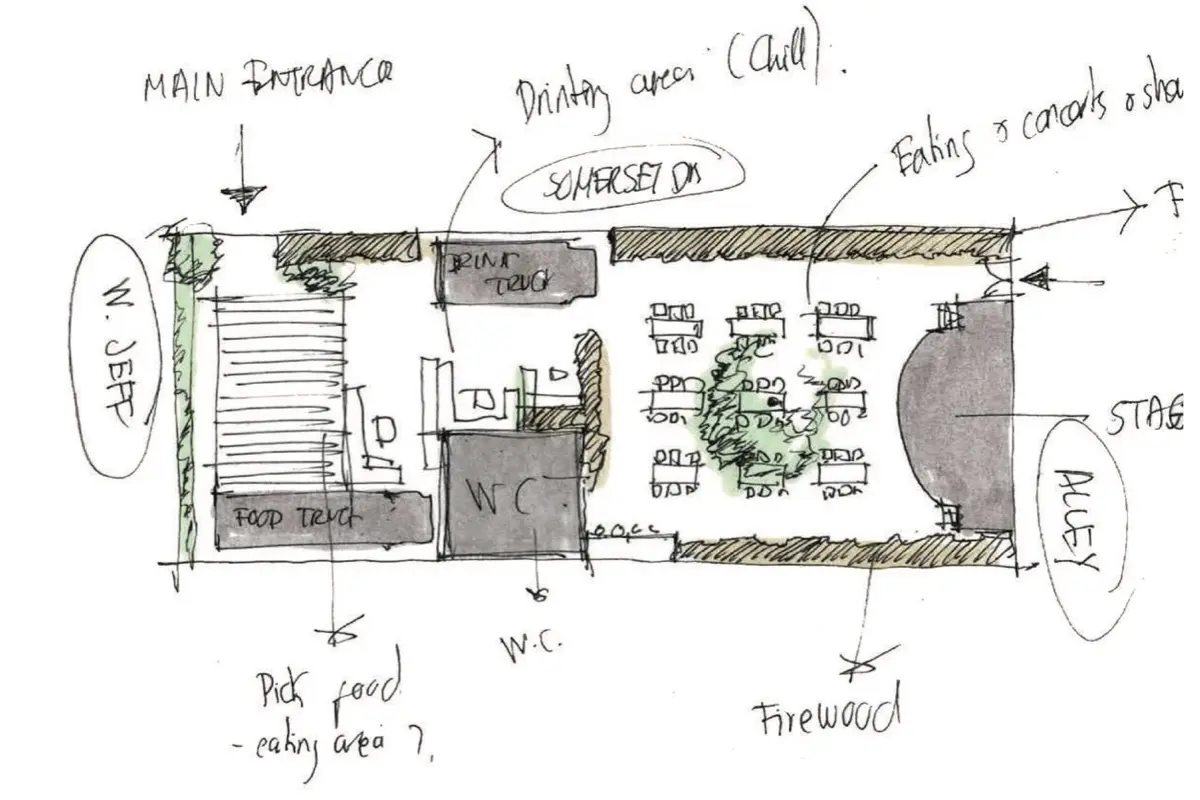 MAIN ENTRANCE
Drinking areas (Chill).
Eating & concerts & sho
SOMERSET DR
F
DRINK
TRUCK
W. JEFF
STAG
WC
FOOD TRUCK
ALLEY
W.C.
Pick food
- eating area ?.
Firewood